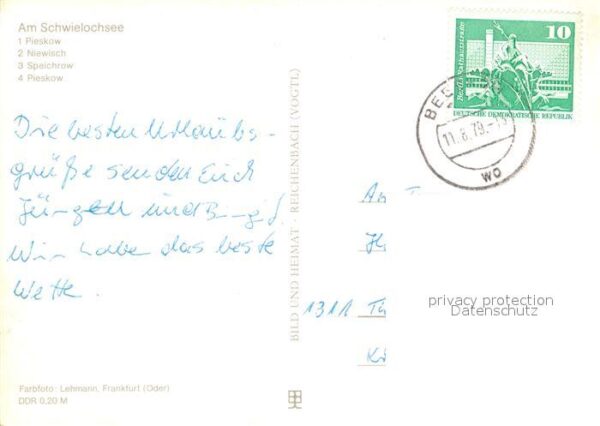 Am Schwielochsee
1 Pieskow
2 Niewisch
3 Speichrow
4 Pieskow
Die besten Urlaubs-
grüße senden Euch
Jürgen und
Wir haben das beste
Wetter.
Farbfoto: Lehmann, Frankfurt (Oder)
DDR 0,20 M
BILD UND HEIMAT · REICHENBACH (VOGTL)
10
DEUTSCHE DEMOKRATISCHE REPUBLIK
11.8.79
wo
1311
privacy protection
Datenschutz